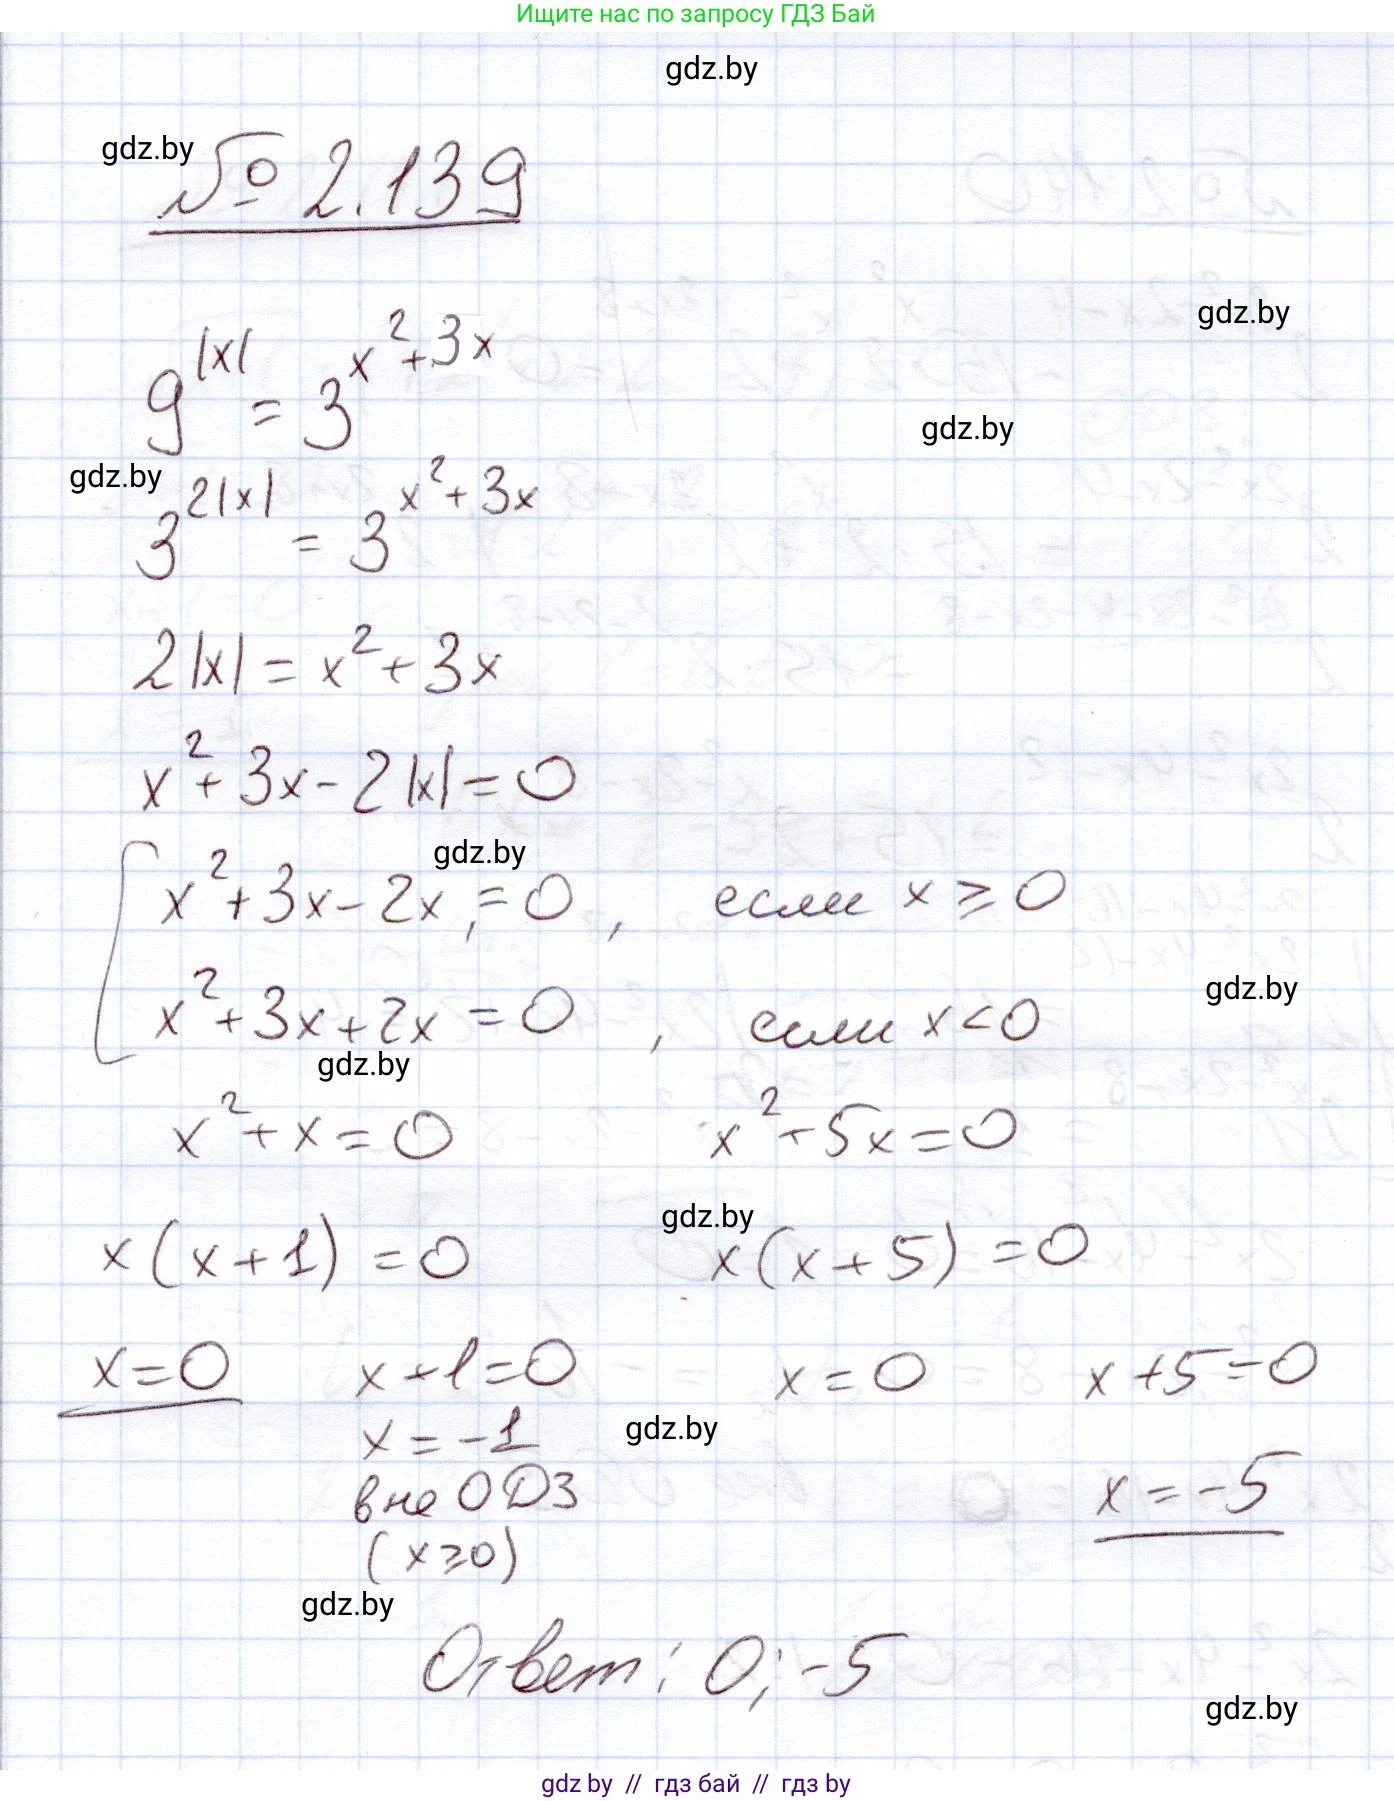 Ищите нас по запросу ГДЗ Бай
gdz.by
gdz.by
№ 2.139
gdz.by
9^|x| = 3^x²+3x
gdz.by
gdz.by
3^2|x| = 3^x²+3x
2|x| = x² + 3x
x² + 3x - 2|x| = 0
gdz.by
x² + 3x - 2x = 0, если x ≥ 0
gdz.by
x² + 3x + 2x = 0, если x < 0
gdz.by
x² + x = 0 x² + 5x = 0
gdz.by
x(x+1) = 0 x(x+5) = 0
x = 0 x+1=0 x = 0 x+5=0
x = -1
gdz.by
вне ОДЗ x = -5
(x≥0)
gdz.by
Ответ: 0; -5
gdz.by
gdz by // гдз бай // гдз by